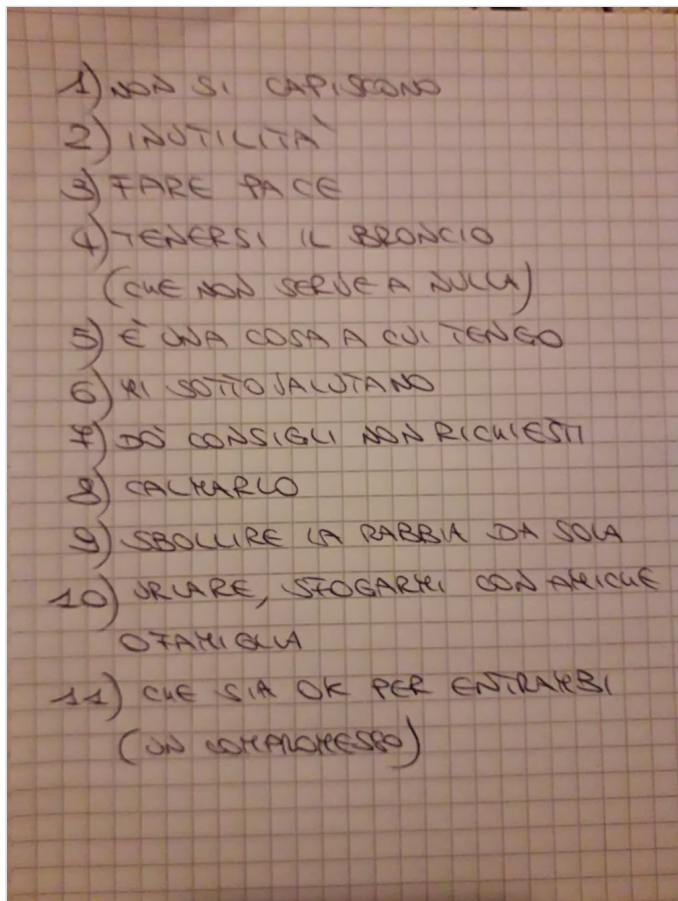 1) NON SI CAPISCONO
2) INUTILITÀ
3) FARE PACE
4) TENERSI IL BRONCIO
(CHE NON SERVE A NULLA)
5) È UNA COSA A CUI TENGO
6) MI SOTTOVALUTANO
7) DÒ CONSIGLI NON RICHIESTI
8) CALMARLO
9) SBOLLIRE LA RABBIA DA SOLA
10) URLARE, SFOGARMI CON AMICHE
O FAMIGLIA
11) CHE SIA OK PER ENTRAMBI
(UN COMPROMESSO)